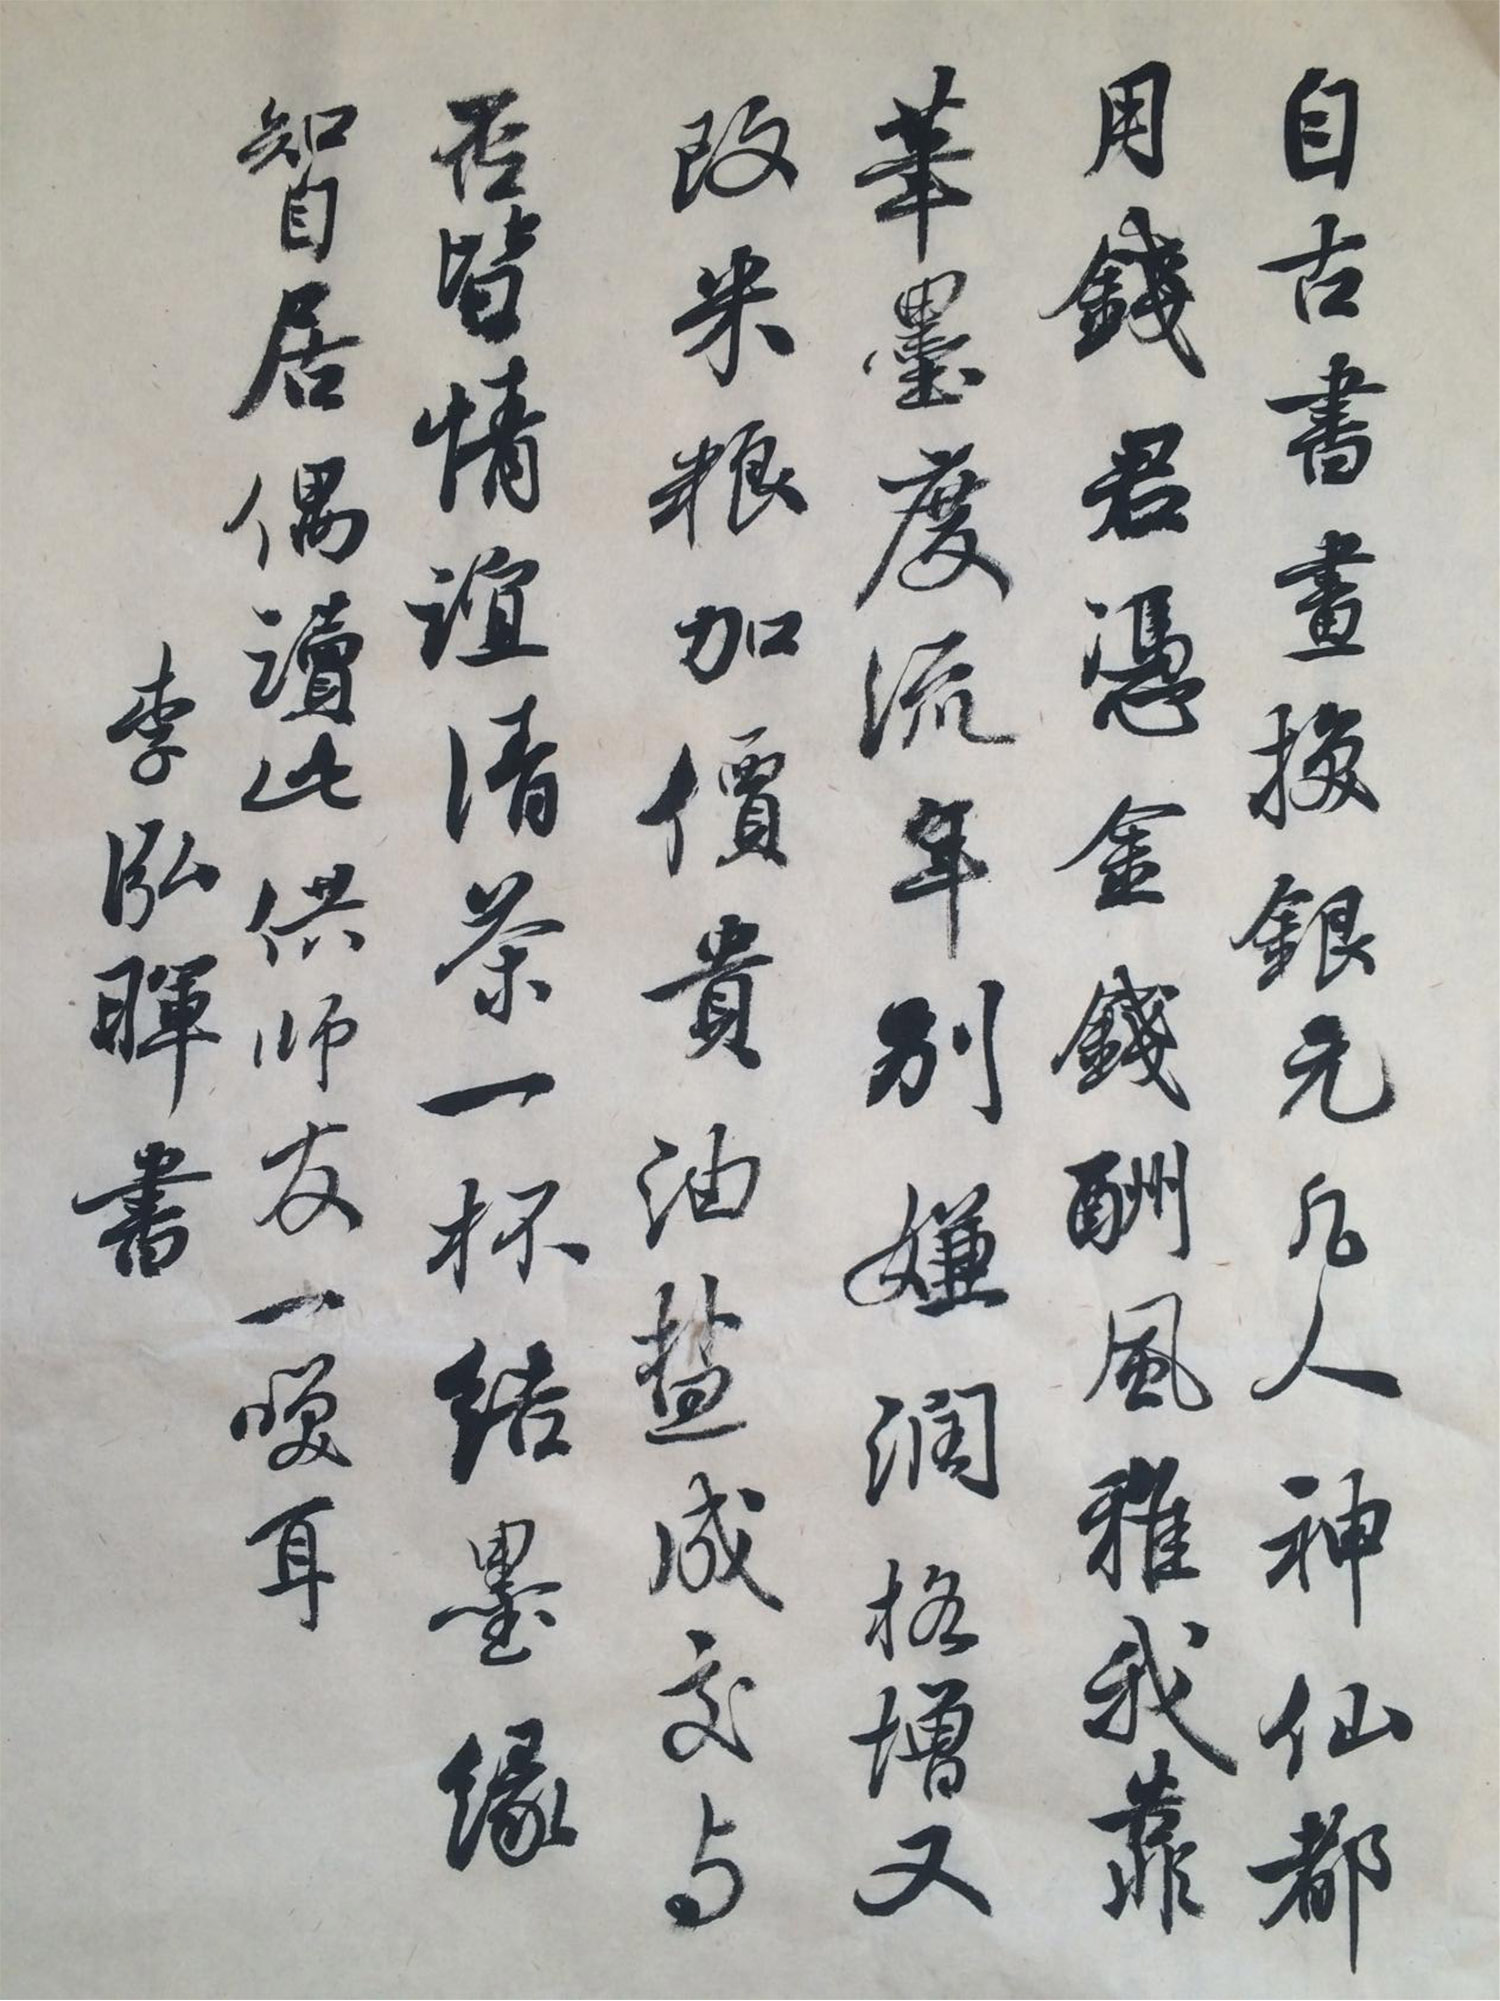 自古書畫换銀元凡人神仙都
用錢君憑金錢酬風雅我靠
筆墨度流年别嫌润格增又
改米粮加價貴油盐成交与
否皆情誼清茶一杯结墨缘
智居偶讀此供师友一嘆耳
李泓暉書